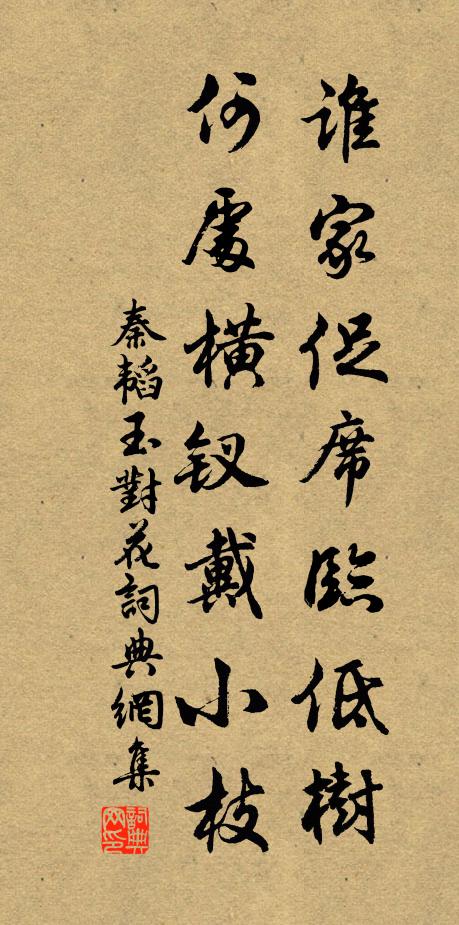 誰家促席臨低樹
何處橫釵戴小枝
秦韜玉對花詞典網集
詞典网印